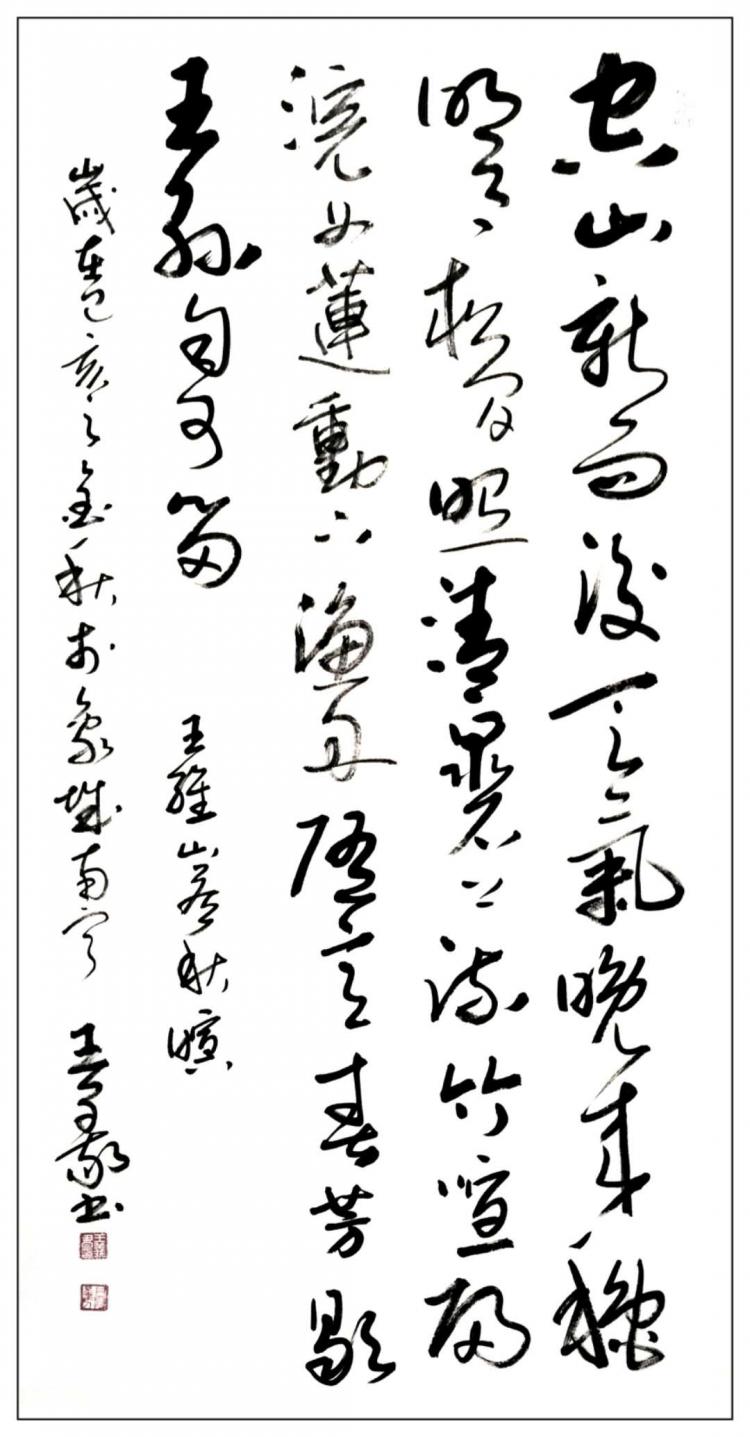 空山新雨後天氣晚來龝
明月松間照清泉石上流竹喧歸
浣女蓮動下漁舟隨意春芳歇
王孫自可留 王維山居秋暝
歲在己亥之金秋於象城南寧 王豪书